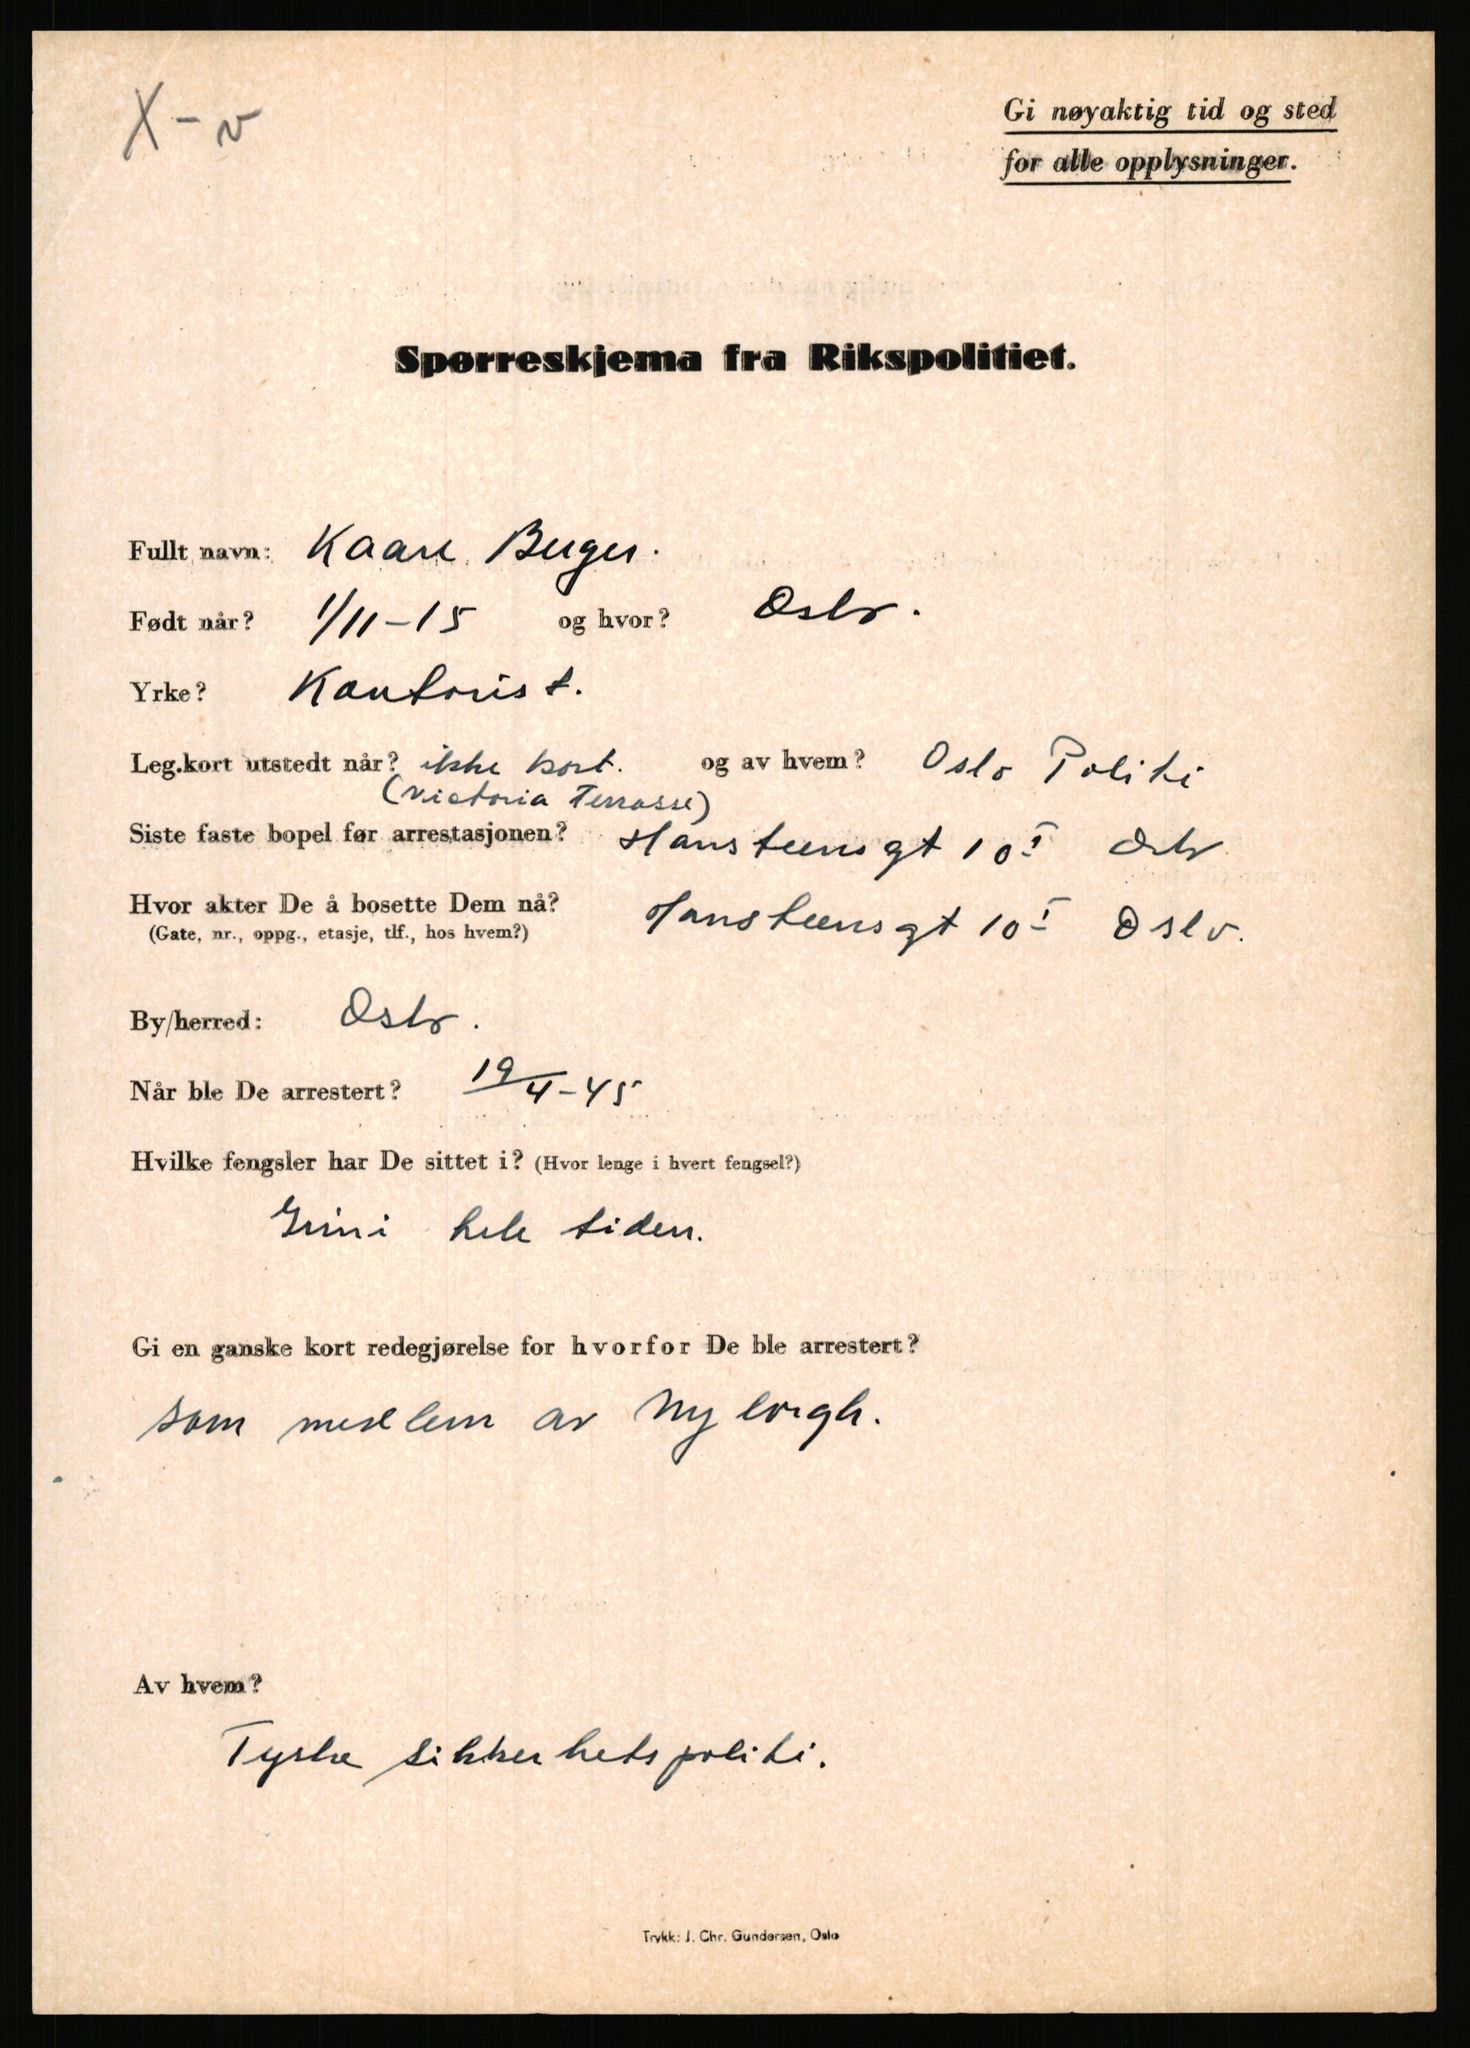 X - v
Gi nøyaktig tid og sted
for alle opplysninger.
Spørreskjema fra Rikspolitiet.
Fullt navn: Kaare Berger.
Født når? 1/11-15 og hvor? Oslo.
Yrke? Kontorist.
Leg.kort utstedt når? ikke kort. og av hvem? Oslo Politi
(Victoria Terrasse)
Siste faste bopel før arrestasjonen? Hansteensgt 10 I Oslo
Hvor akter De å bosette Dem nå? Hansteensgt 10 I Oslo.
(Gate, nr., oppg., etasje, tlf., hos hvem?)
By/herred: Oslo.
Når ble De arrestert? 19/4-45
Hvilke fengsler har De sittet i? (Hvor lenge i hvert fengsel?)
Grini hele tiden.
Gi en ganske kort redegjørelse for hvorfor De ble arrestert?
som medlem av My
Av hvem?
Tyske sikkerhetspoliti.
Trykk: J. Chr. Gundersen, Oslo